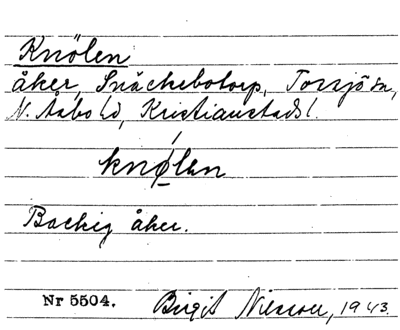 Knölen
åker, Snäckebotorp, Torsjö sn,
N. Åsbo hd, Kristianstads l.
knǿ̱len
Backig åker.
Nr 5504. Birgit Nilsson, 1943.